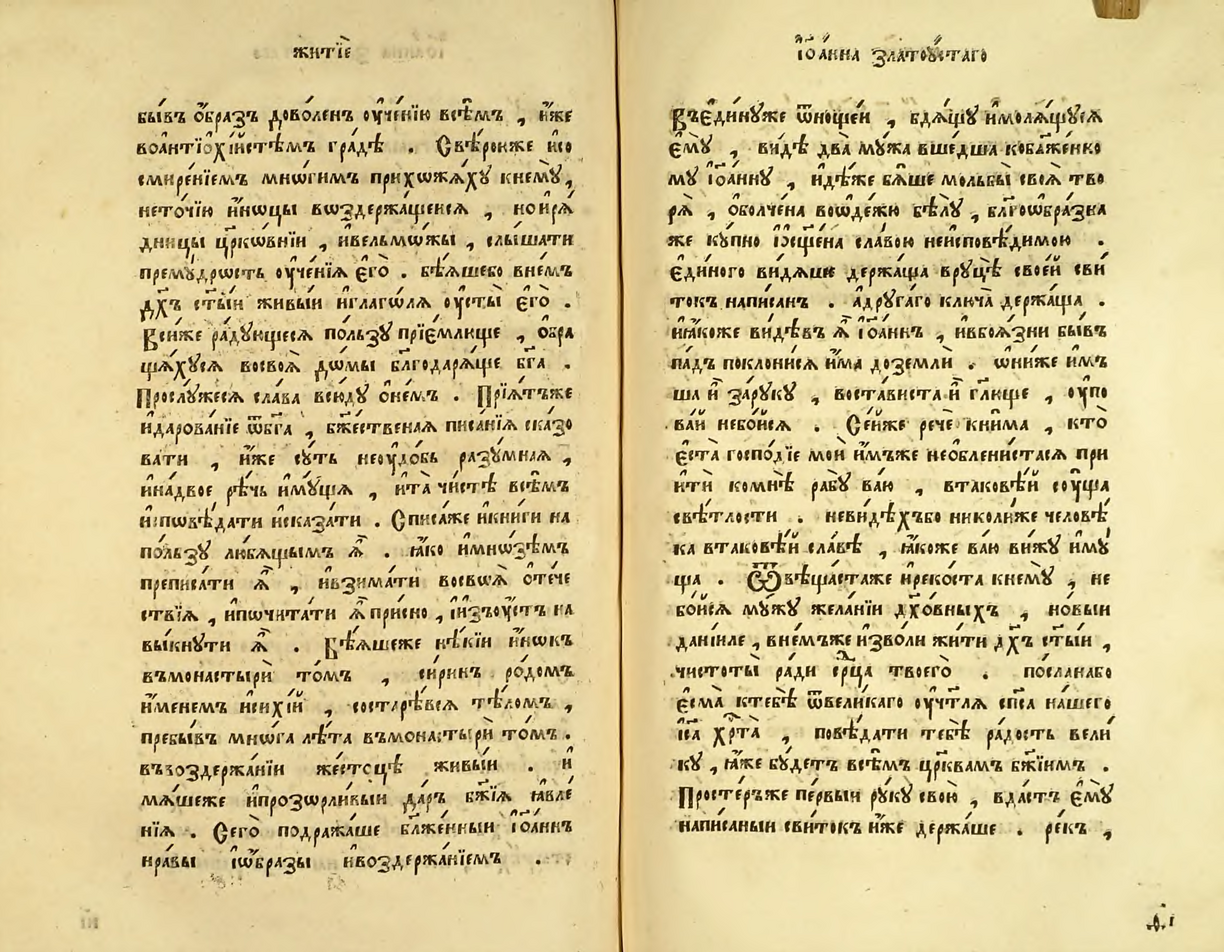 житїе
бы́въ ѻ҆́бразъ дово́ленъ ᲂу҆ченїю всѣ́мъ , и҆́же
воантїѻхі́йстѣмъ гра́дѣ . Свѣ́роюже исо
смире́нїемъ мнѡ́гимъ прихѡжѧ́ху кнемꙋ̀,
нето́чїю и҆́нѡцы вѡздержа́щеисѧ , нои҆рѧ́
дницы цр҃кѡ́внїи , и҆вельмѡ́жы , слы́шати
премꙋ́дрѡсть ᲂу҆че́нїѧ є҆гѡ̀ . бѣ́ѧшебо вне́мъ
дх҃ъ ст҃ы́и живы́и и҆глаго́лѧ ᲂу҆сты̀ є҆гѡ̀ .
Вси́же ра́дꙋющесѧ по́льзꙋ прїе́млюще , ѻ҆бра
щѧ́хꙋсѧ восвоѧ̀ дѡ́мы бл҃годарѧ́ще бг҃а .
Прослꙋ́жесѧ сла́ва всю́дꙋ ѻ҆не́мъ . Прїѧ́тъже
и҆дарова́нїе ѿбг҃а , бж҃е́ственаѧ писа́нїѧ сказо
вати , и҆́же сꙋ́ть неᲂу҆до́бь разꙋ́мнаѧ ,
и҆на́двое рѣ́чь и҆мꙋ́щѧ , и҆та̀ чи́стѣ всѣ́мъ
и҆спѡвѣ́дати и҆сказа́ти . Списа́же и҆кни́ги на
по́льзꙋ любѧ́щымъ ѧ҆̀ . ꙗ҆́ко и҆мнѡ́зѣмъ
преписа́ти ѧ҆̀ , и҆взима́ти восвоѧ̀ ѻ҆те́че
ствїѧ , и҆пѡчита́ти ѧ҆̀ при́сно , і҆изъᲂу҆́стъ на
вы́кнꙋти ѧ҆̀ . Бѣ́ѧшеже нѣ́кїи и҆́нокъ
въмонастырѝ то́мъ , си́ринъ ро́домъ
и҆́менемъ и҆сихі́й , состарѣ́всѧ тѣ́ломъ ,
пребы́въ мнѡ́га лѣ́та въмонастырѝ то́мъ .
въвоздержа́нїи же́стоцѣ живы́и . и҆
мѧ́шеже и҆прозѡрли́выи да́ръ бж҃їѧ ꙗ҆вле
нїѧ . Сегѡ̀ подража́ше бл҃же́нныи і҆ѡа́ннъ
нра́вы і҆ѡ҆́бразы и҆воздержа́нїемъ .
і҆ѻа́нна златоꙋ́стаго
Въєди́нꙋже ѿноще́и , бдѧ́щꙋ и҆молѧ́щꙋсѧ
є҆мꙋ̀ , ви́дѣ два̀ мꙋ́жа вше́дша кобл҃же́нно
мꙋ і҆ѻа́ннꙋ , и҆дѣ́же бѧ́ше мольбы̀ своѧ̀ тво
рѧ̀ , ѻ҆болче́на воѡде́жю бѣ́лꙋ , бл҃гоѡбра́зна
же кꙋ́пно і҆ѻсще́на сла́вою неисповѣ́димою .
є҆ди́ного ви́дѧше держа́ща врꙋцѣ̀ свое́й сви
токъ напи́санъ . а҆дрꙋга́го ключа̀ держа́ща .
и҆ꙗ҆́коже ви́дѣвъ ѧ҆̀ і҆ѻа́ннъ , и҆вбоѧ́зни бы́въ
па́дъ поклони́сѧ и҆́ма доземлѝ . ѡ҆ни́же и҆́мъ
ша и҆̀ зарꙋ́кꙋ , воста́виста и҆̀ гл҃ю́ще , ᲂу҆по
ва́й небо́йсѧ . Се́йже речѐ кни́ма , кто̀
є҆ста̀ госпо́дїе мои̑ и҆́мъже необлени́стасѧ прі
и҆тѝ комнѣ̀ рабꙋ̀ ва́ю , втако́вѣй сꙋ́ща
свѣ́тлости . неви́дѣхъбо николи́же человѣ́
ка втако́вѣй сла́вѣ , ꙗ҆́коже ва́ю ви́жꙋ и҆мꙋ́
ща . Ѿвѣща́стаже и҆реко́ста кнемꙋ̀ , не
бо́йсѧ мꙋ́жꙋ жела́нїи дх҃о́вныхъ , но́выи
данїи́ле , вне́мъже изво́ли жи́ти дх҃ъ ст҃ы́и ,
чистоты̀ ра́ди ср҃ца твоегѡ̀ . по́сланабо
є҆сма̀ ктебѣ̀ ѿвели́каго ᲂу҆чт҃лѧ сп҃са на́шего
і҆с҃а хр҃та̀ , повѣ́дати тебѣ̀ ра́дость вели́
кꙋ , ꙗ҆́же бꙋ́детъ всѣ́мъ цр҃квамъ бж҃їимъ .
Просте́ръже пе́рвыи рꙋ́кꙋ свою̀ , вда́стъ є҆мꙋ̀
напи́саныи сви́токъ и҆́же держа́ше . ре́къ ,